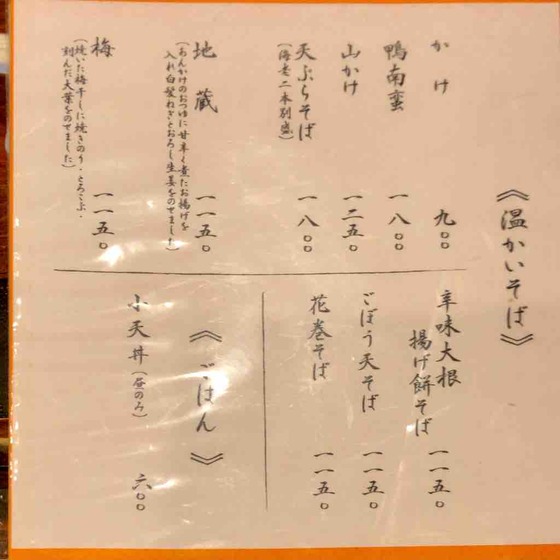 《温かいそば》
かけ 九〇〇
鴨南蛮 一八〇〇
山かけ 一二五〇
天ぷらそば 一八〇〇
(海老二本別盛)
地蔵 一一五〇
(あんかけのおつゆに甘辛く煮たお揚げを
入れ白髪ねぎとおろし生姜をのせました)
梅 一一五〇
(焼いた梅干しに焼きのり・とろろこぶ・
刻んだ大葉をのせました)
辛味大根
揚げ餅そば 一一五〇
ごぼう天そば 一一五〇
花巻そば 一一五〇
《ごはん》
小天丼(昼のみ) 六〇〇